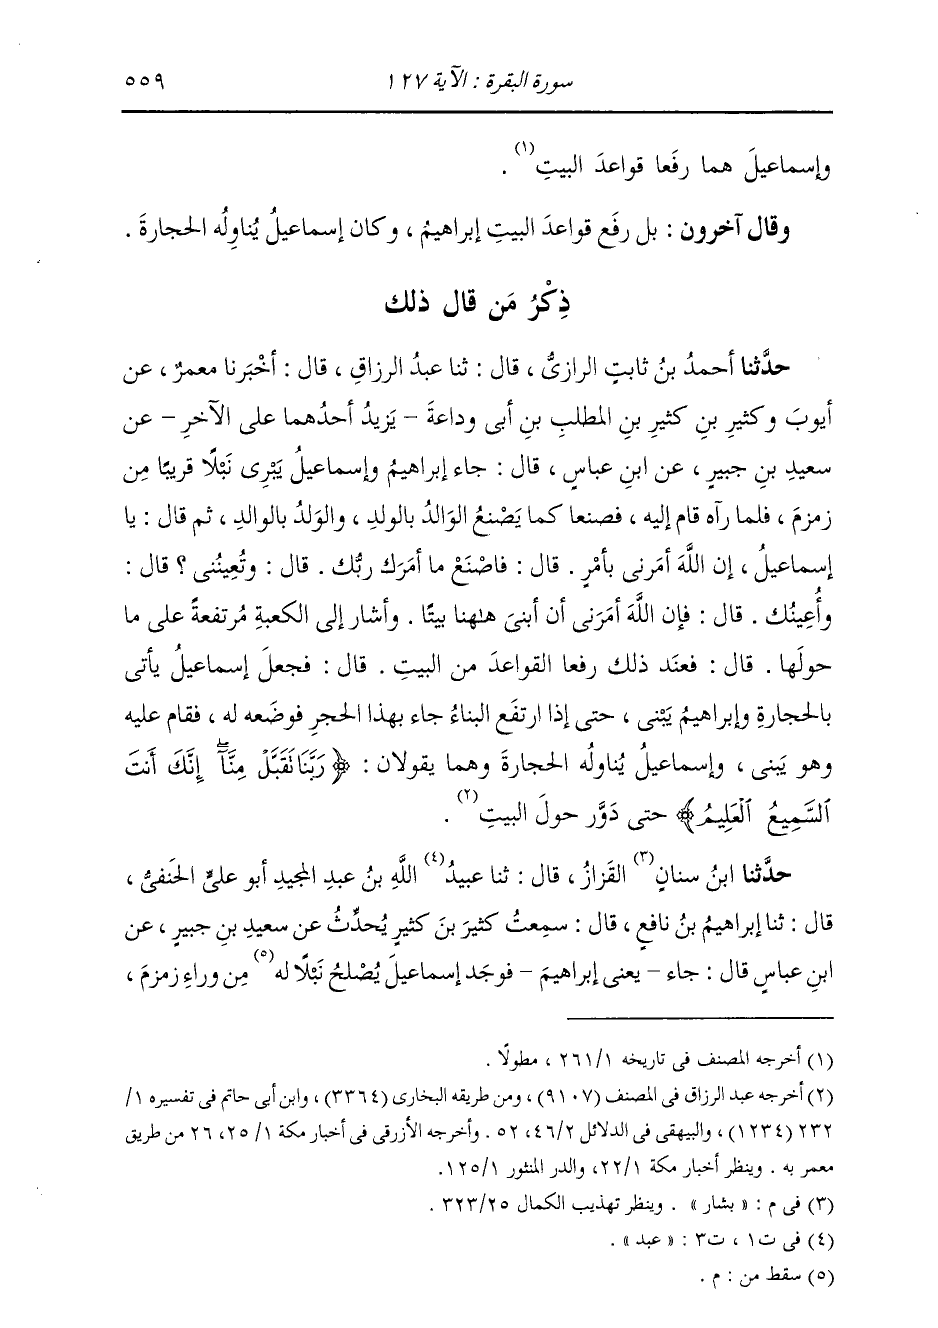 سورة البقرة : الآية ١٢٧ ٥٥٩
وإسماعيلَ هما رفَعا قواعدَ البيتِ(١) .
وقال آخرون : بل رفَع قواعدَ البيتِ إبراهيمُ ، وكان إسماعيلُ يُناوِلُه الحجارةَ .
ذِكْرُ مَن قال ذلك
حدَّثنا أحمدُ بنُ ثابتٍ الرازىُّ ، قال : ثنا عبدُ الرزاقِ ، قال : أخْبَرنا معمرٌ ، عن
أيوبَ وكثيرِ بنِ كثيرِ بنِ المطلبِ بنِ أبى وداعةَ - يَزيدُ أحدُهما على الآخرِ - عن
سعيدِ بنِ جبيرٍ ، عن ابنِ عباسٍ ، قال : جاء إبراهيمُ وإسماعيلُ يَبْرِى نَبْلًا قريبًا مِن
زمزمَ ، فلما رآه قام إليه ، فصنعا كما يَصْنعُ الوَالدُ بالولدِ ، والوَلدُ بالوالدِ ، ثم قال : يا
إسماعيلُ ، إن اللَّهَ أمَرنى بأمْرٍ . قال : فاصْنَعْ ما أمَرَك ربُّك . قال : وتُعِينُنى ؟ قال :
وأُعِينُك . قال : فإن اللَّهَ أمَرَنى أن أبنىَ هلهنا بيتًا . وأشار إلى الكعبةِ مُرتفعةً على ما
حولَها . قال : فعنَد ذلك رفعا القواعدَ من البيتِ . قال : فجعلَ إسماعيلُ يأتى
بالحجارةِ وإبراهيمُ يَبْنى ، حتى إذا ارتفَع البناءُ جاء بهذا الحجرِ فوضَعه له ، فقام عليه
وهو يَبنى ، وإسماعيلُ يُناولُه الحجارةَ وهما يقولان : ﴿ رَبَّنَا نَقَبَّلْ مِنَّآ إِنَّكَ أَنتَ
ٱلسَّمِيعُ ٱلْعَلِيمُ﴾ حتى دَوَّر حولَ البيتِ(٢) .
حدَّثنا ابنُ سنانٍ(٣) القَزازُ ، قال : ثنا عبيدُ(٤) اللَّهِ بنُ عبدِ المجيدِ أبو علىٍّ الحَنفىُ ،
قال : ثنا إبراهيمُ بنُ نافعٍ ، قال : سمِعتُ كثيرَ بنَ كثيرٍ يُحدِّثُ عن سعيدِ بنِ جبيرٍ ، عن
ابنِ عباسٍ قال : جاء - يعنى إبراهيمَ - فوجَد إسماعيلَ يُصْلحُ نَبْلًا له(٥) مِن وراءِ زمزمَ ،
(١) أخرجه المصنف فى تاريخه ٢٦١/١ ، مطولًا .
(٢) أخرجه عبد الرزاق فى المصنف (٩١٠٧) ، ومن طريقه البخارى (٣٣٦٤) ، وابن أبى حاتم فى تفسيره ١/
٢٣٢ (١٢٣٤) ، والبيهقى فى الدلائل ٤٦/٢، ٥٢ . وأخرجه الأزرقى فى أخبار مكة ١/ ٢٥، ٢٦ من طريق
معمر به . وينظر أخبار مكة ٢٢/١، والدر المنثور ١٢٥/١.
(٣) فى م : « بشار » . وينظر تهذيب الكمال ٣٢٣/٢٥ .
(٤) فى ت١ ، ت٣ : « عبد » .
(٥) سقط من : م .